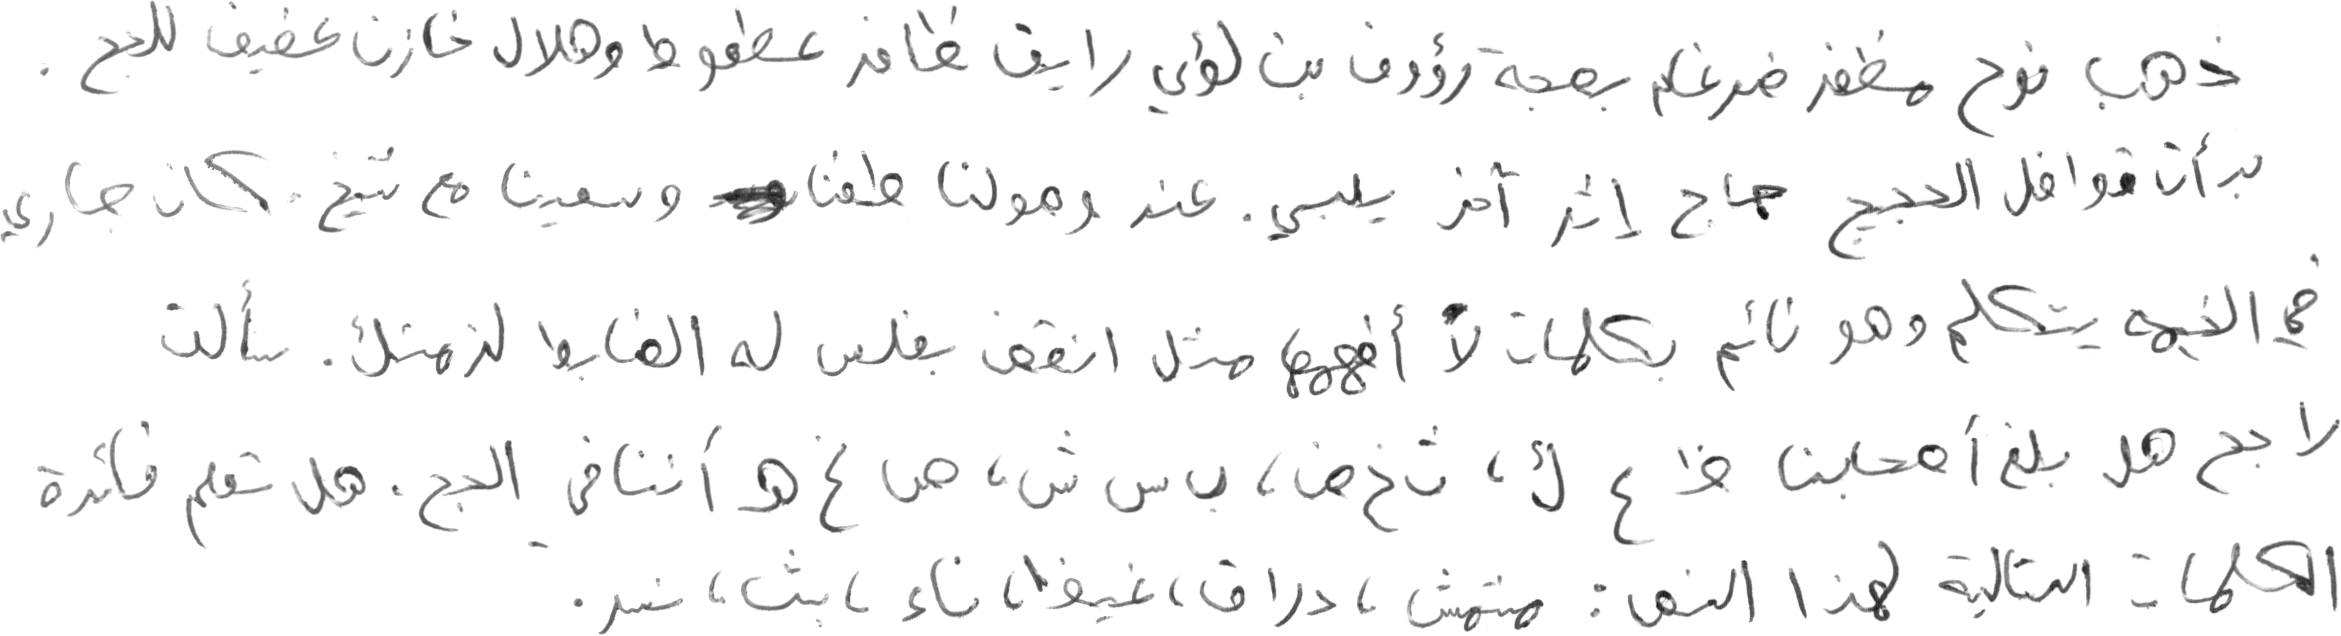 ذهب نوح مظفر ضرغام بصحبة رؤوف بن لؤي رايق ظافر عطعوط وهلال خازن عفيف للحج .
بدأت قوافل الحجيج حاج إثر آخر يلبي . عند وصولنا طفنا وسعينا مع شيخ . كان جاري
في الخيمه يتكلم وهو نائم بكلمات لا أفهمها مثل انقض بغلس له الضابط لزمتك . سألت
لاجح هل بلغ أصحابنا ظ ع ك ، ث خ ض ، ب س ش ، ص غ هـ أننا في الحج . هل تعلم فائدة
الكلمات التالية لهذا النص : مشمش ، دراق ، غيظ ، ناء ، بث ، ند .